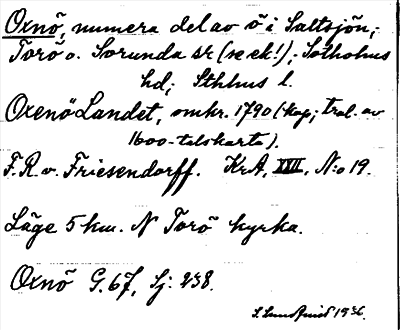 Oxnö, numera del av ö i Saltsjön,
Torö o. Sorunda sr (se ek!), Sotholms
hd, Sthlms l.
OxenöLandet, omkr. 1790 (kop; trol. av
1600-talskarta).
F.R. v. Friesendorff. KrA, XVII, N:o 19.
Läge 5 km. N Torö kyrka.
Oxnö G. 67, Sj. 238.
S. Lundqvist 1936.